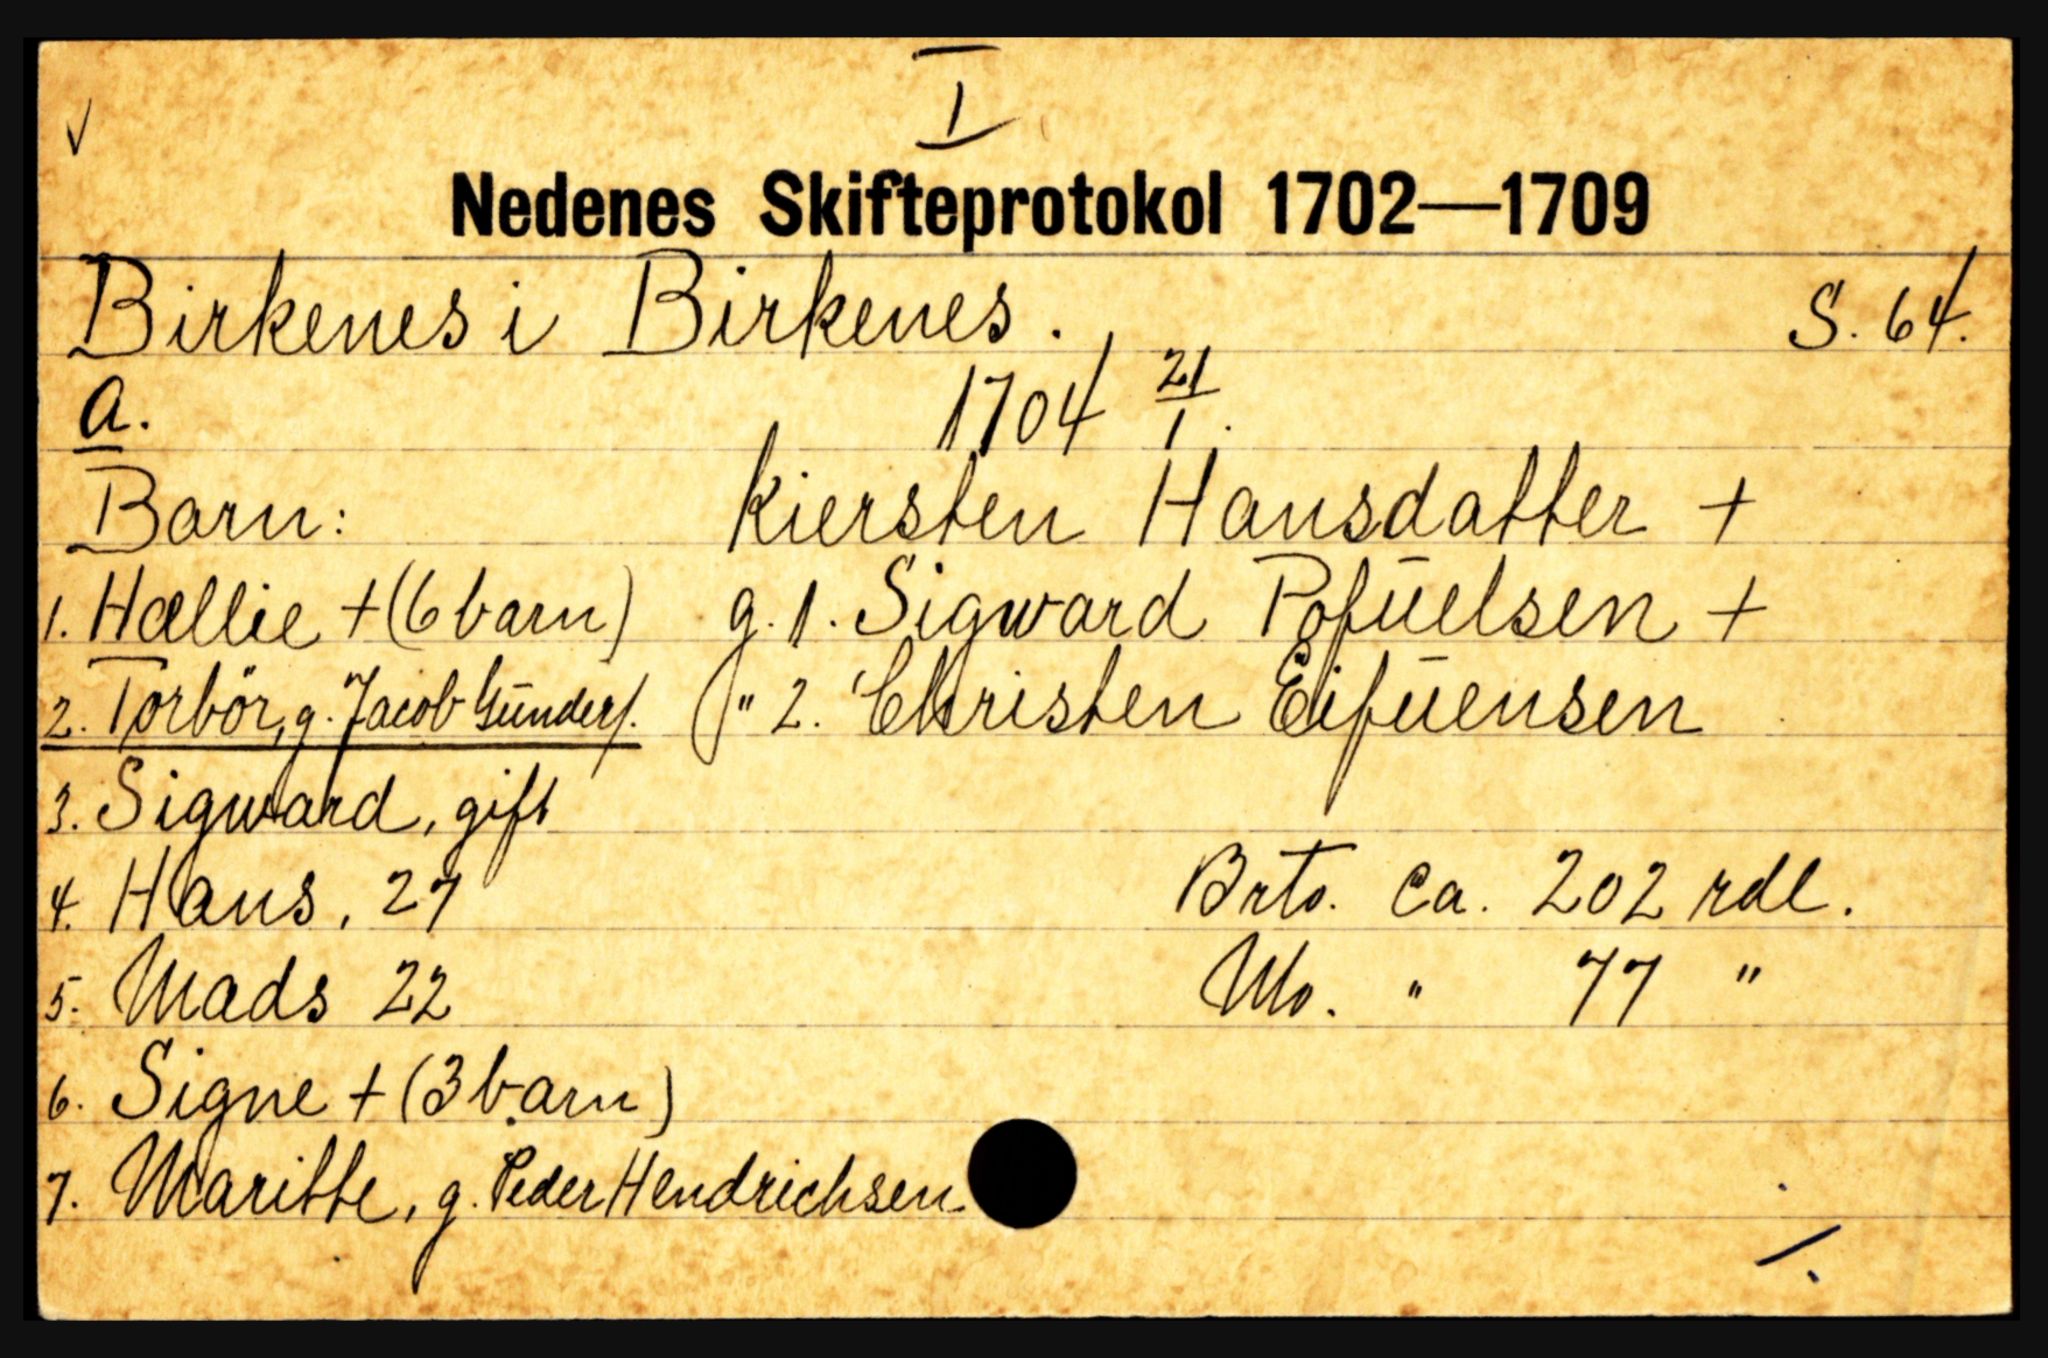 I
Nedenes Skifteprotokol 1702—1709
Birkenes i Birkenes. S. 64.
a. 1704 21/1.
Barn: Kiersten Hansdatter +
1. Hællie + (6 barn) g. 1. Sigward Pofŭelsen +
2. Torbör, g. Jacob Gŭnders. " 2. Christen Eifŭensen
3. Sigward, gift
4. Hans, 27 Brto. ca. 202 rdl.
5. Mads 22 Nto. " 77 "
6. Signe + (3 barn)
7. Maritte, g. Peder Hendrichsen